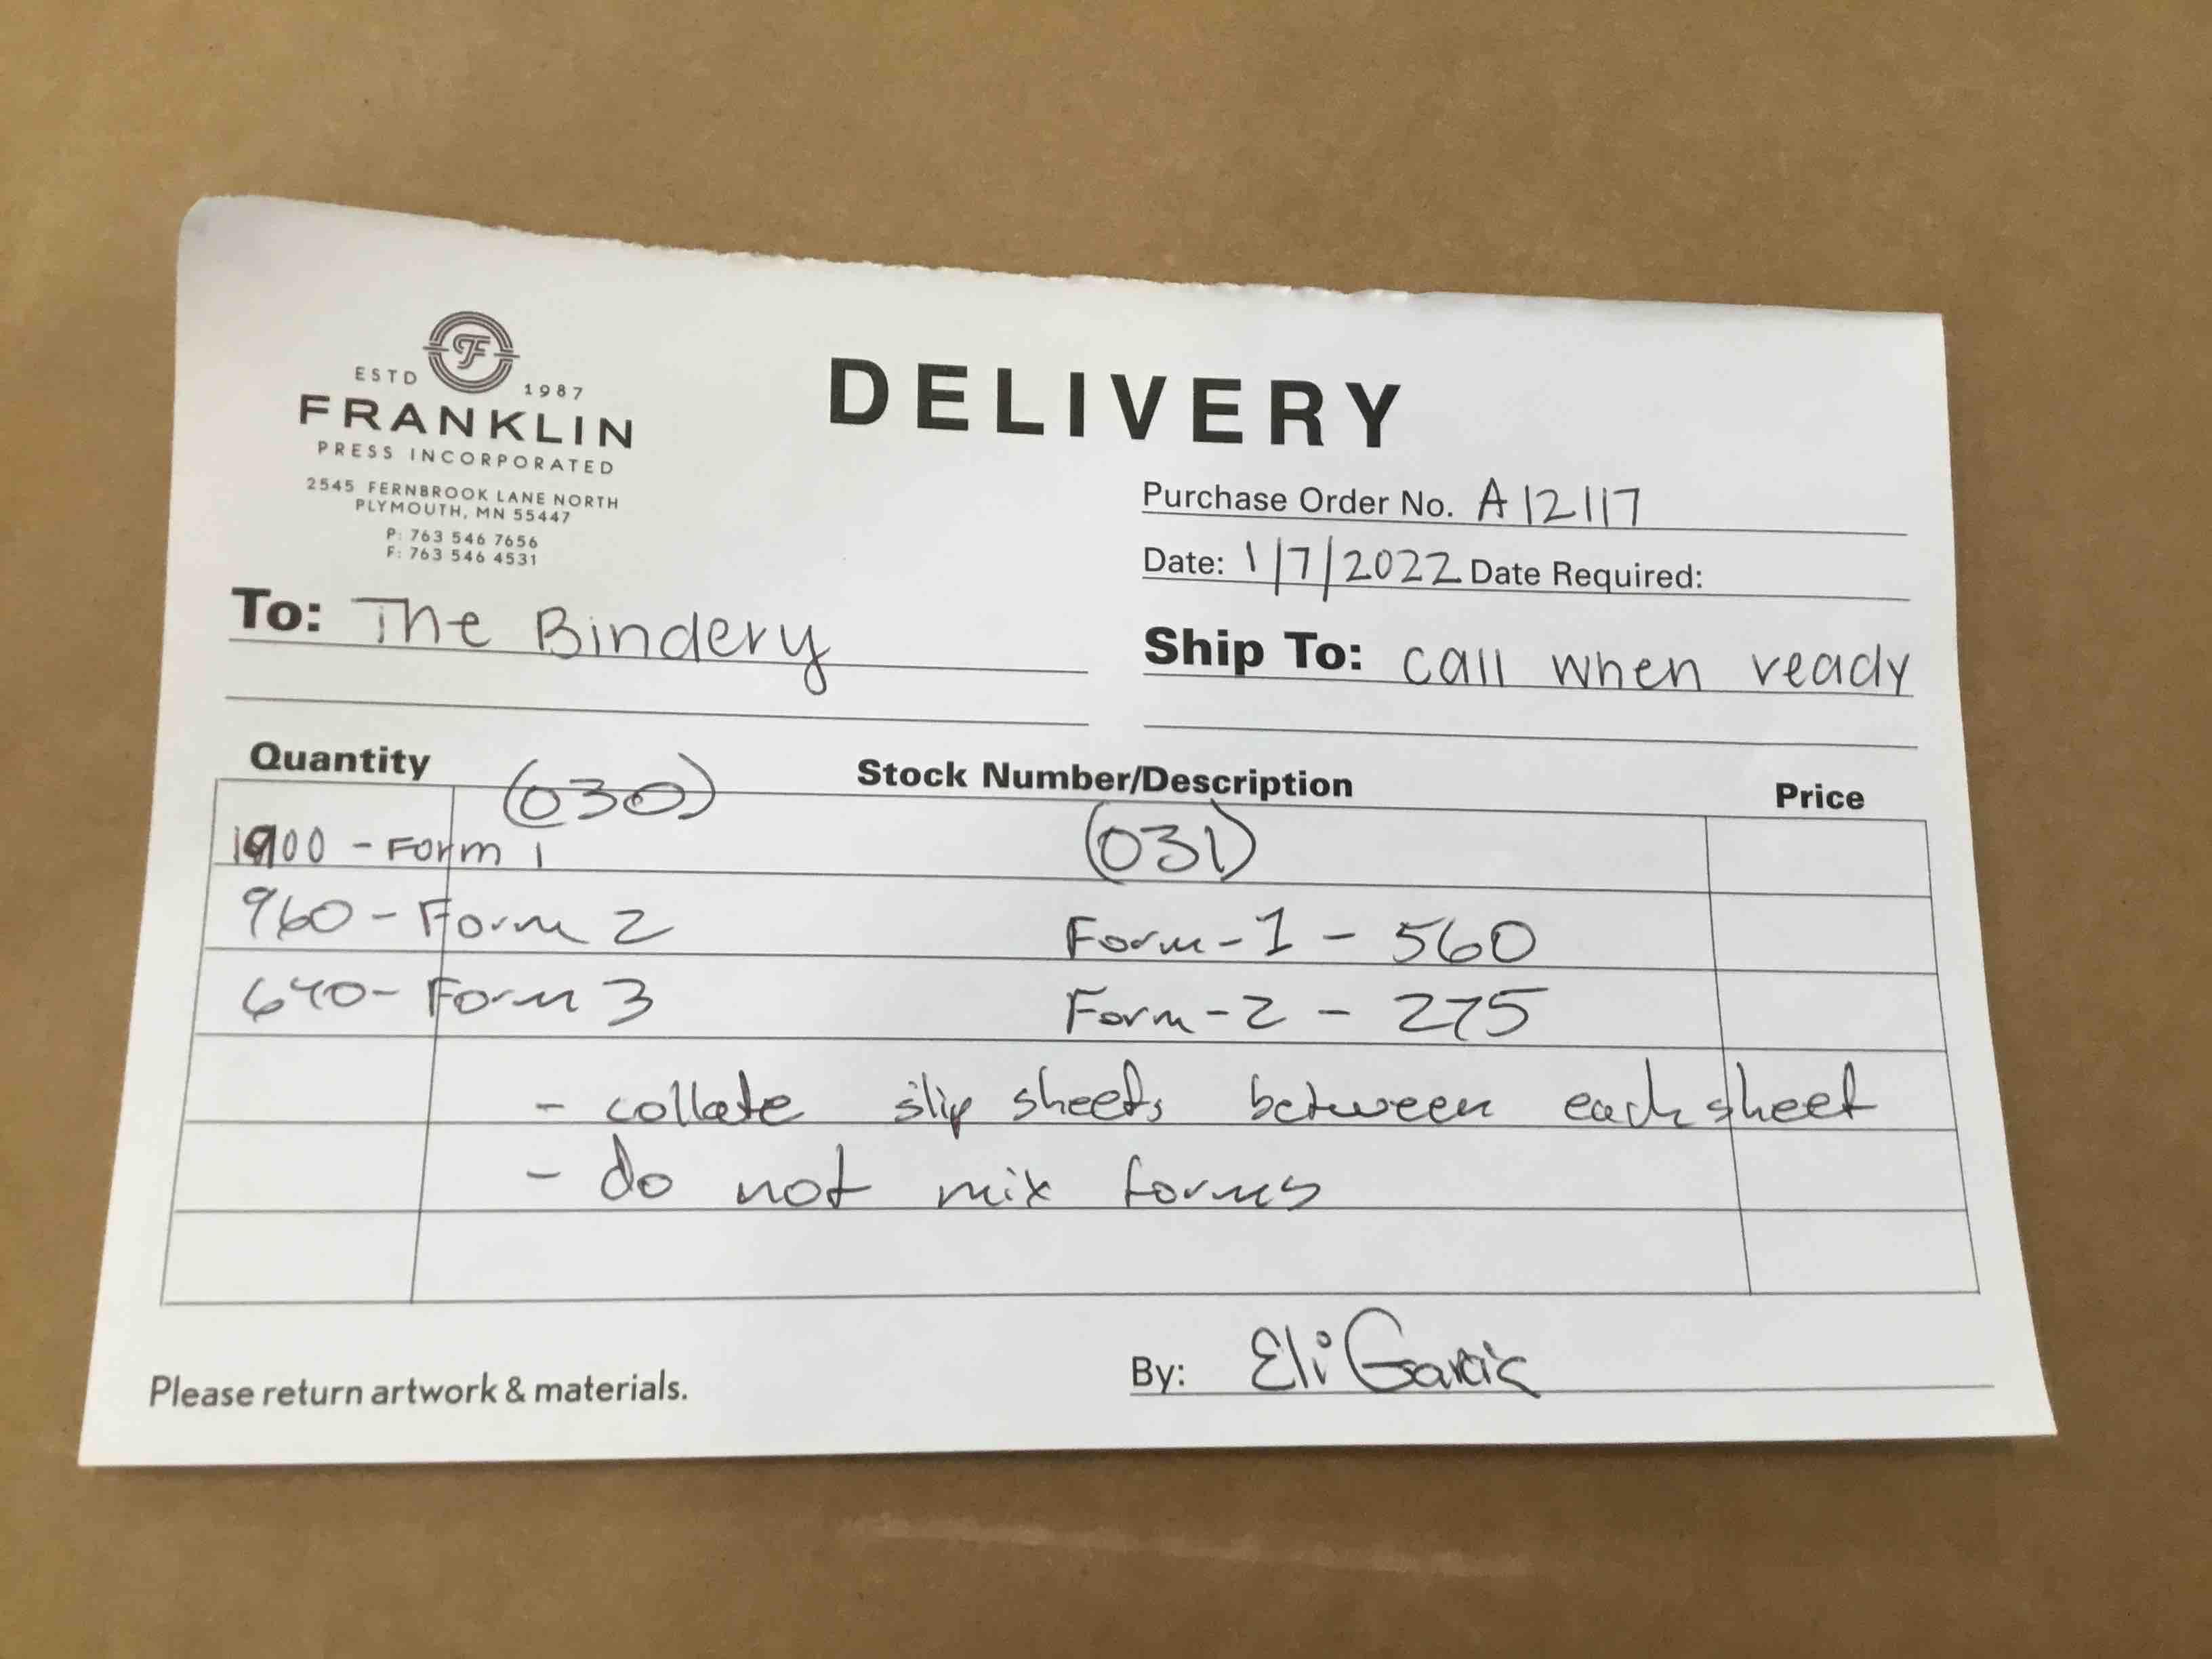 ESTD 1987
FRANKLIN
PRESS INCORPORATED
2545 FERNBROOK LANE NORTH
PLYMOUTH, MN 55447
P: 763 546 7656
F: 763 546 4531
DELIVERY
Purchase Order No. A12117
Date: 1/7/2022 Date Required:
To: The Bindery
Ship To: call when ready
Quantity Stock Number/Description Price
(030)
(031)
1900 - Form 1
960 - Form 2 Form-1 - 560
640- Form 3 Form-2 - 275
- collate slip sheets between each sheet
- do not mix forms
Please return artwork & materials.
By: Eli Garcia